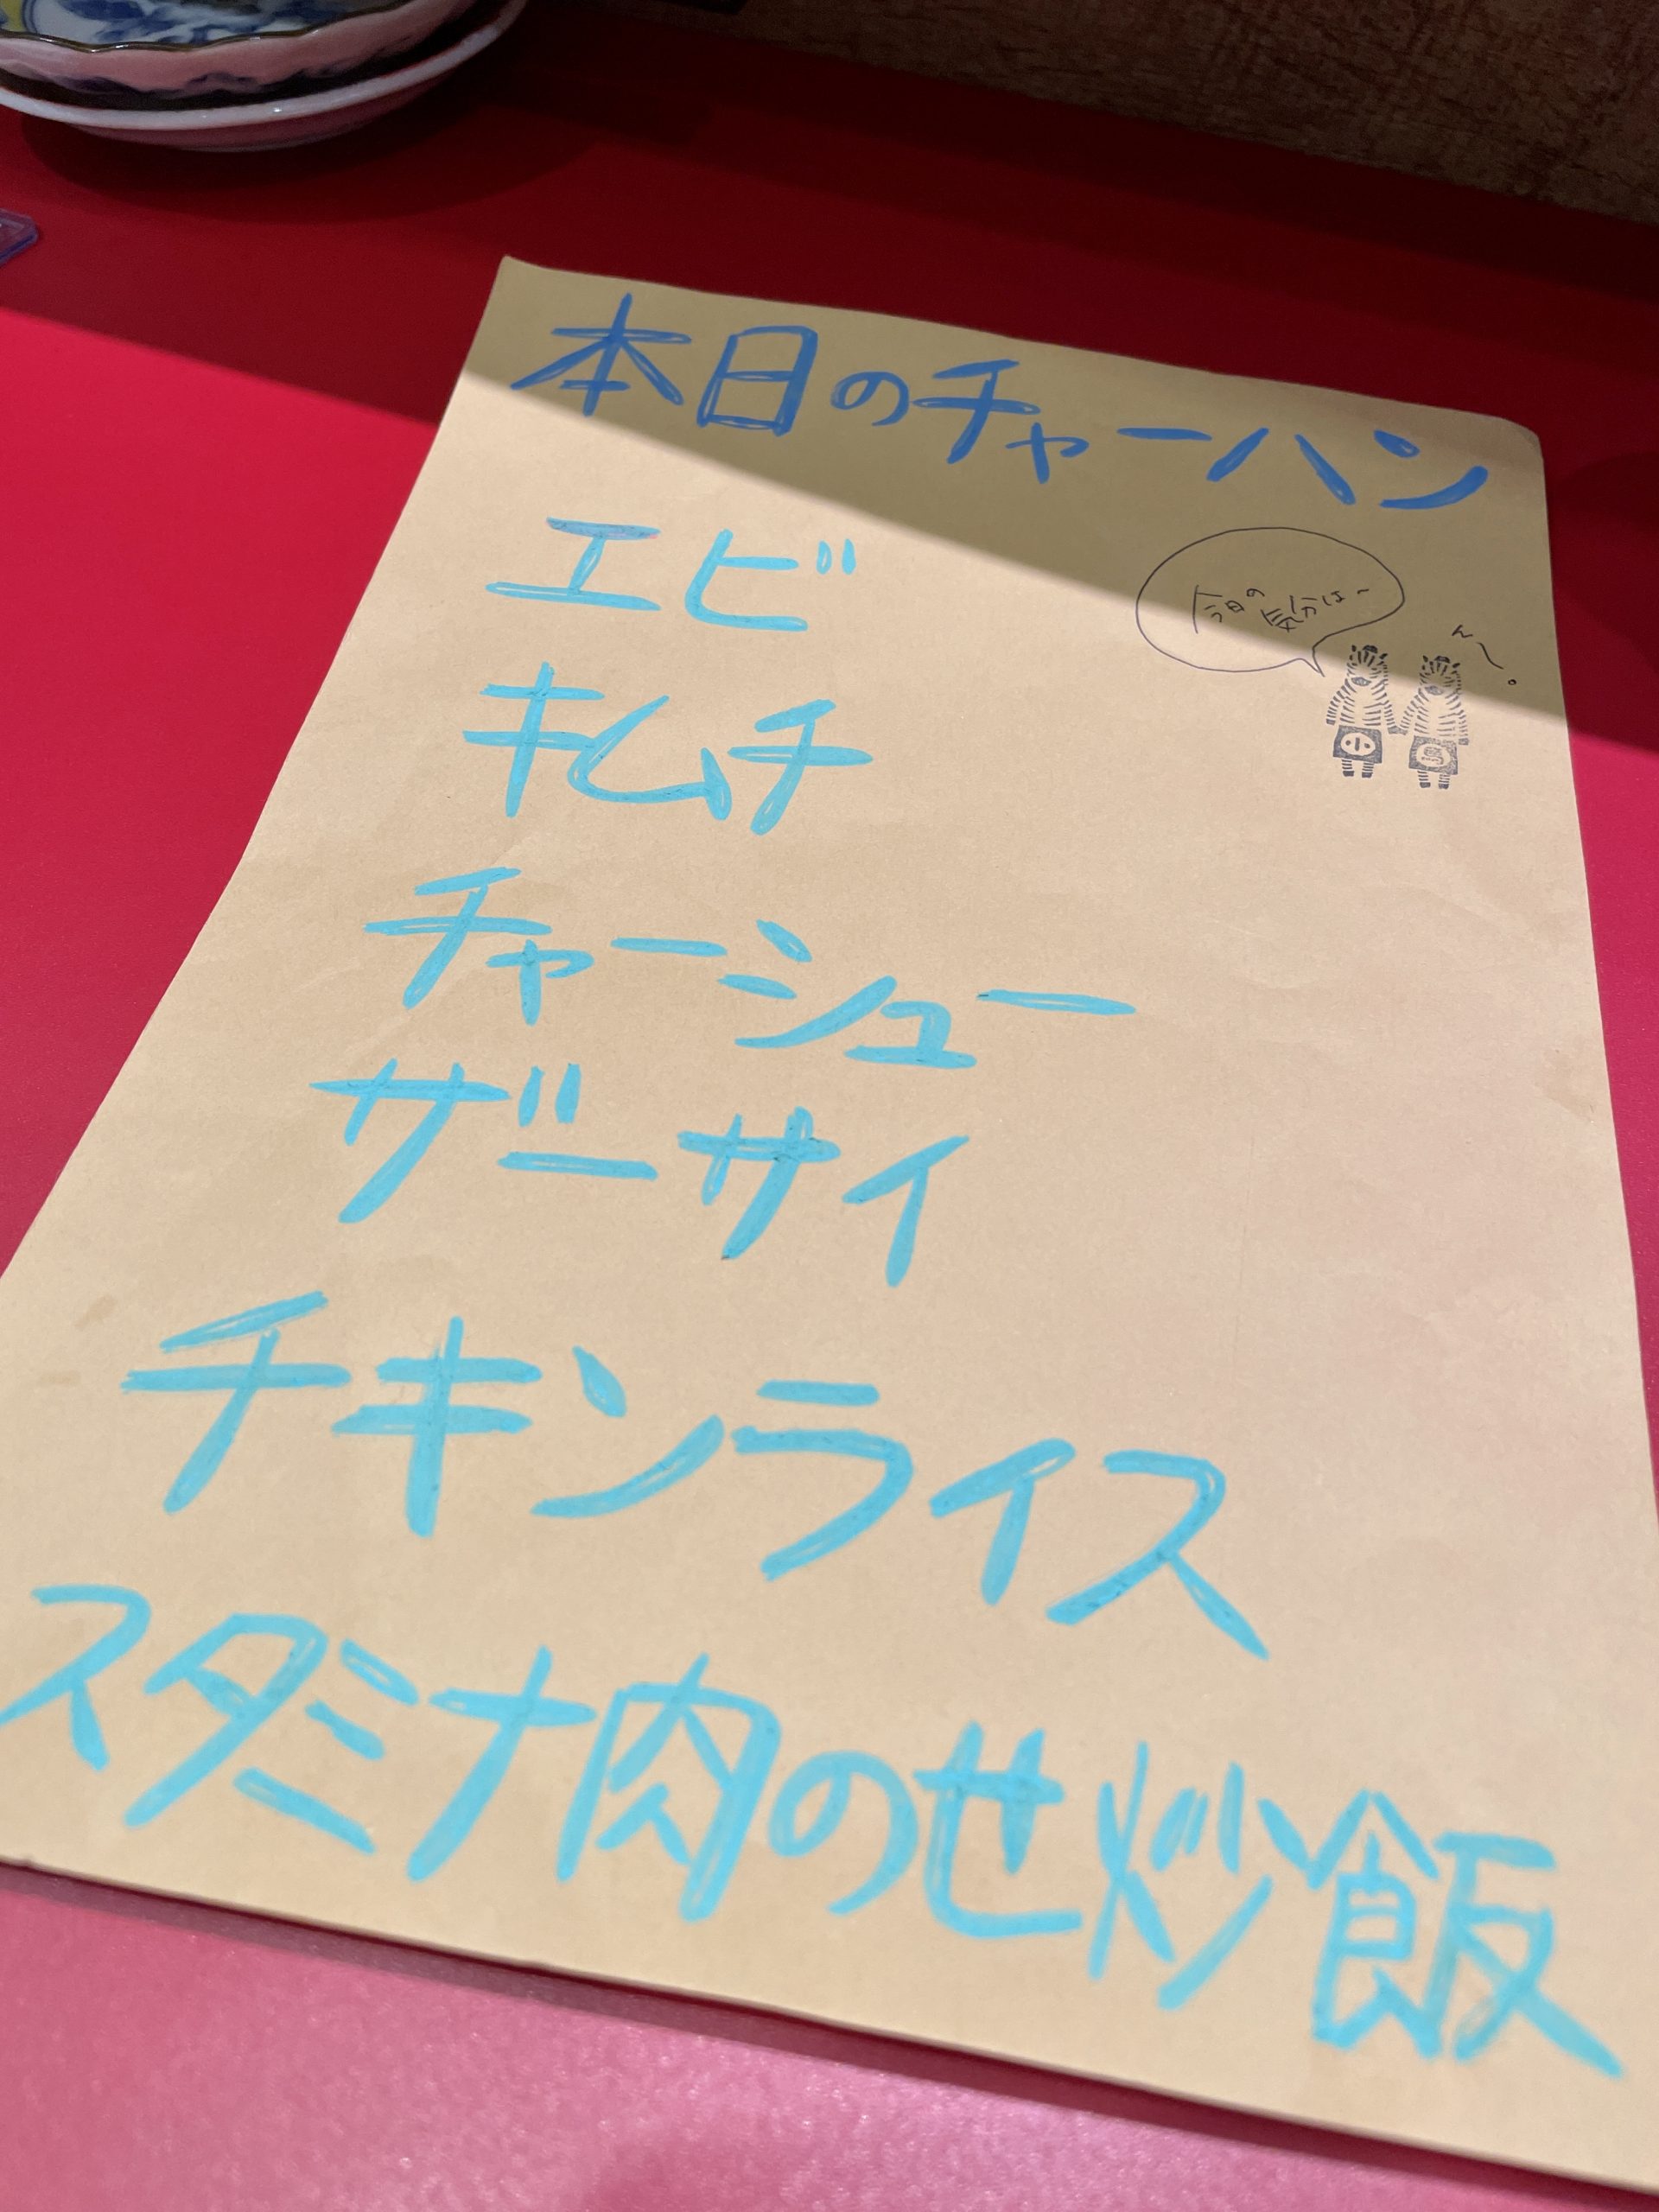 本日のチャーハン
今日の気分は〜
ん〜。
エビ
キムチ
チャーシュー
ザーサイ
チキンライス
スタミナ肉のせ炒飯